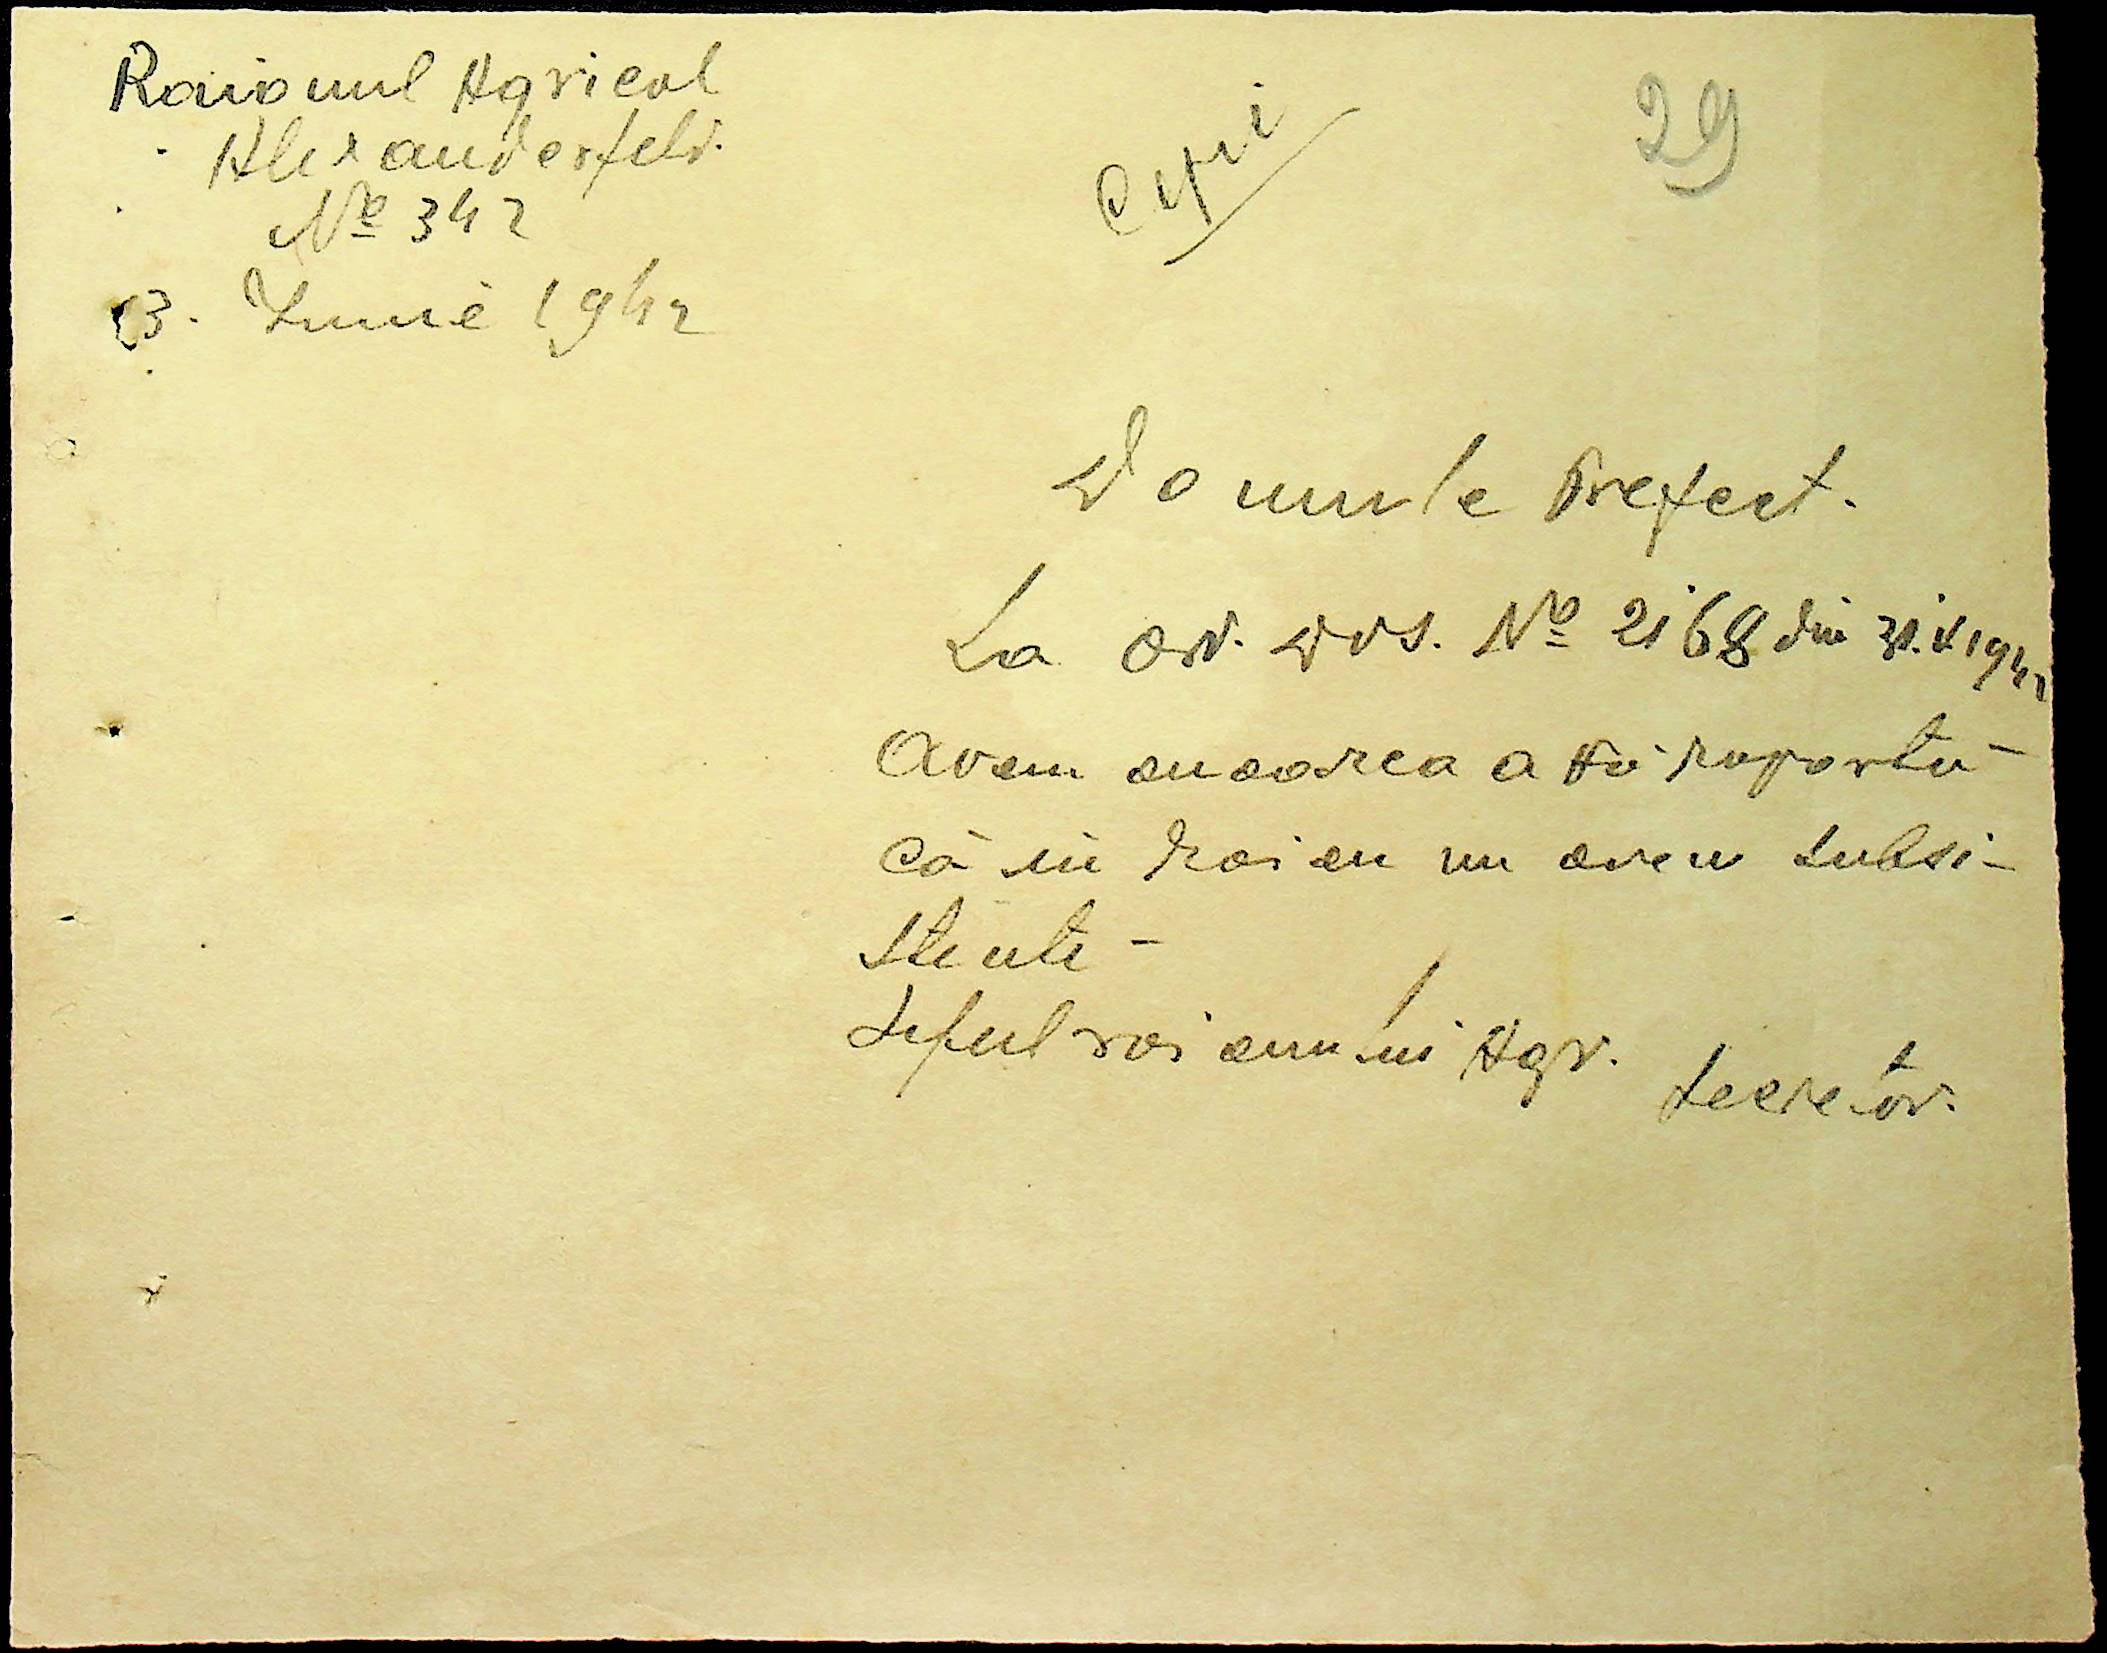 Raionul Agricol
Alexanderfeld.
№ 342
13. Iunie 1942
Copii
29
Domnule Prefect.
La ord. Dvs. № 2168 din 31.V.1942
Avem onoarea a Vă raportă
că in raion nu aven subsi-
stente -
Seful raionului Agr. Secretar.